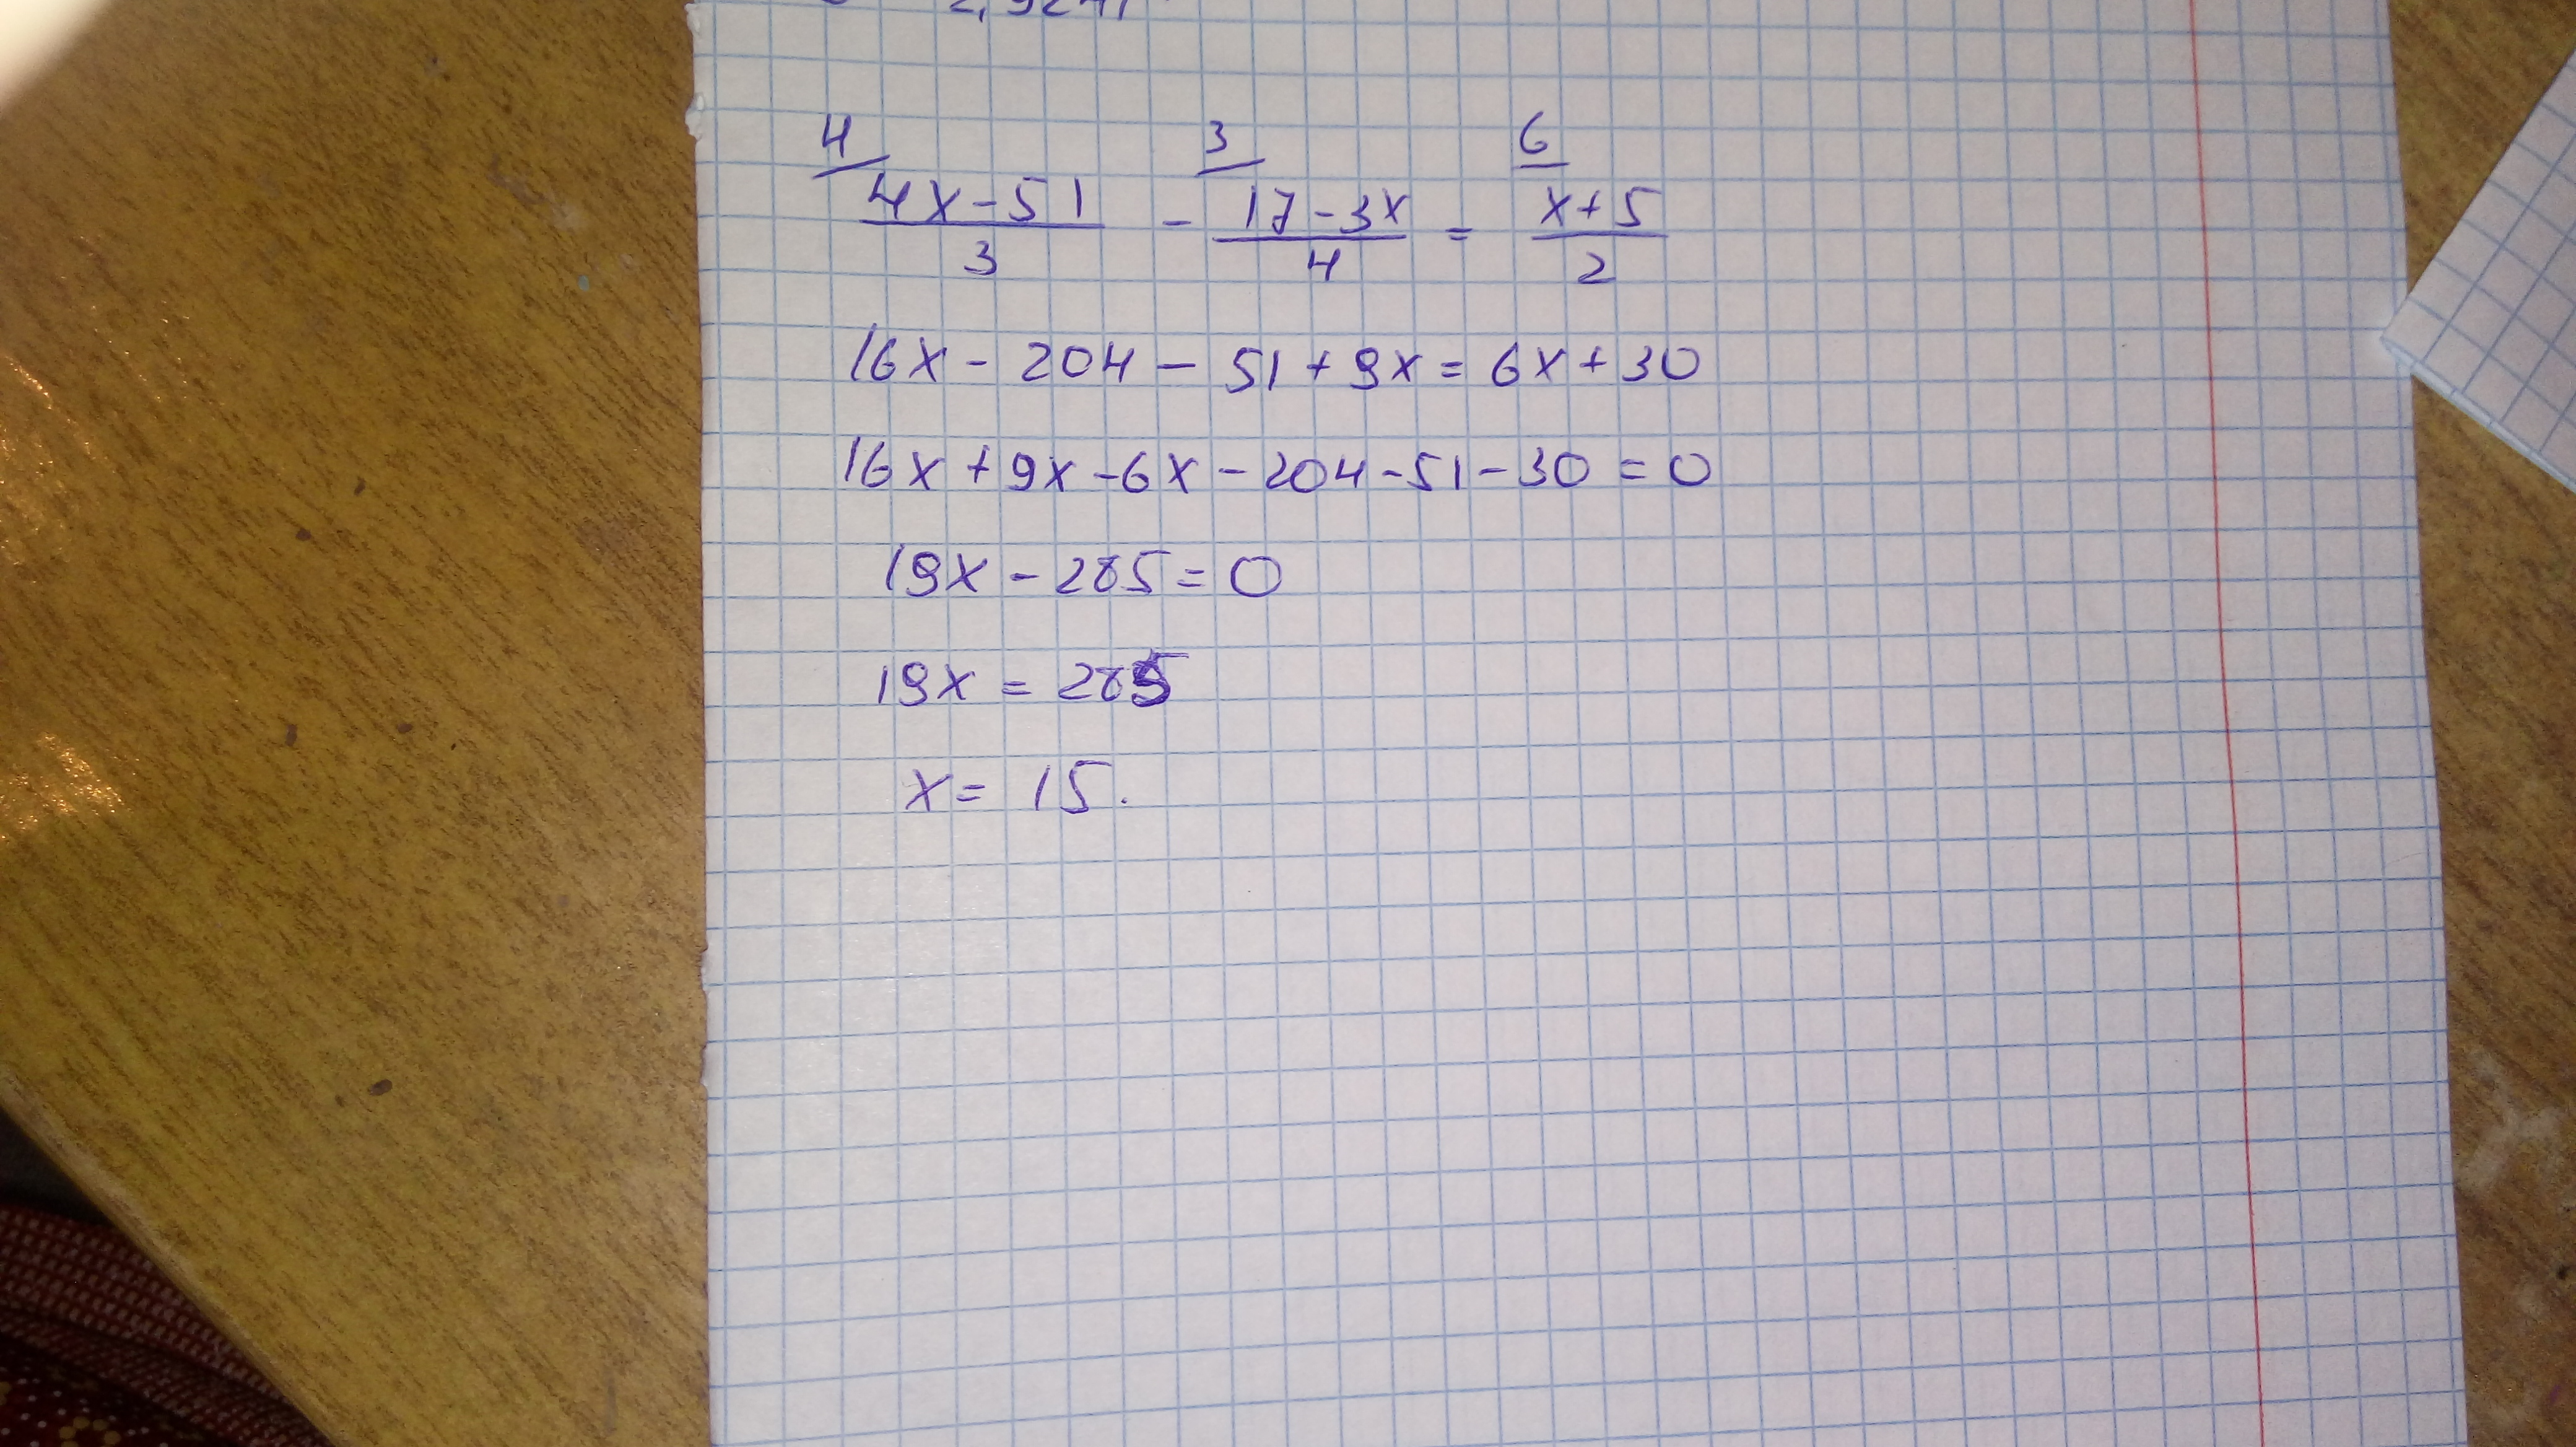 4 3 6
4x-51 - 17-3x = x+5
3 4 2
16x - 204 - 51 + 9x = 6x + 30
16x + 9x - 6x - 204 - 51 - 30 = 0
19x - 285 = 0
19x = 285
x = 15.